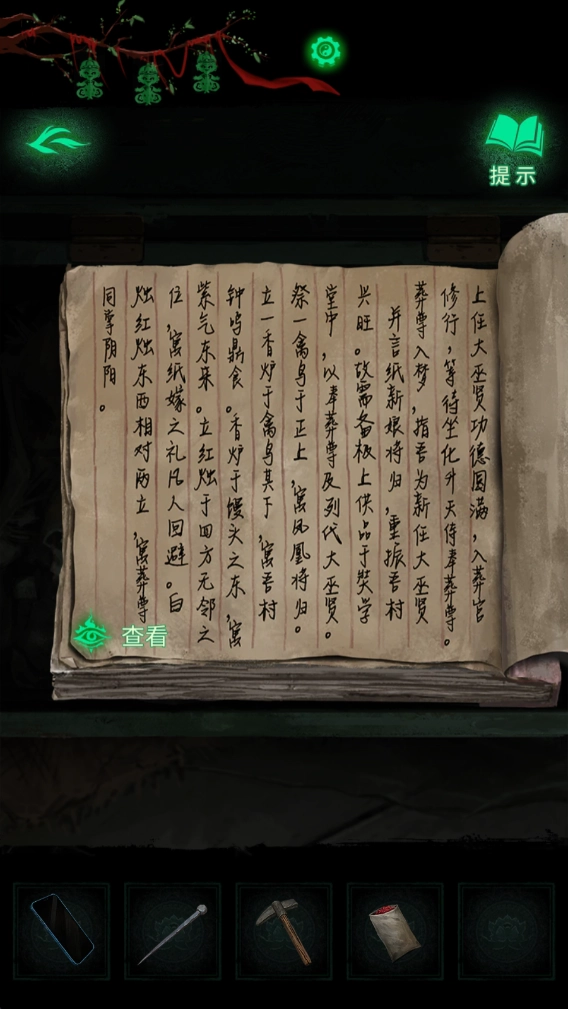 提示
上任大巫贤功德圆满，入葬官
修行，等待坐化升天侍奉葬尊。
葬尊入梦，指吾为新任大巫贤
并言纸新娘将归，重振吾村
兴旺。故需备极上供品于奘学
堂中，以奉葬尊及列代大巫贤。
祭一禽鸟于正上，寓凤凰将归。
立一香炉于禽鸟其下，寓吾村
钟鸣鼎食。香炉于馒头之东，寓
紫气东来。立红烛于四方无邻之
位，寓纸嫁之礼凡人回避。白
烛红烛东西相对两立，寓葬尊
同掌阴阳。
查看